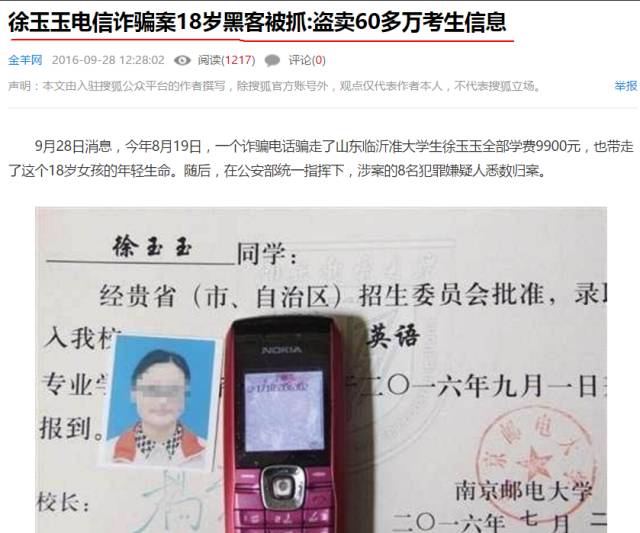 徐玉玉电信诈骗案18岁黑客被抓:盗卖60多万考生信息
金羊网 2016-09-28 12:28:02 阅读(1217) 评论(0)
声明：本文由入驻搜狐公众平台的作者撰写，除搜狐官方账号外，观点仅代表作者本人，不代表搜狐立场。 举报
9月28日消息，今年8月19日，一个诈骗电话骗走了山东临沂准大学生徐玉玉全部学费9900元，也带走
了这个18岁女孩的年轻生命。随后，在公安部统一指挥下，涉案的8名犯罪嫌疑人悉数归案。
徐玉玉 同学：
经贵省（市、自治区）招生委员会批准，录取
入我校 英语
NOKIA
专业学 二〇一六年九月一日
报到。
京邮电大学
校长： 南京邮电大学
二〇一六年七月二